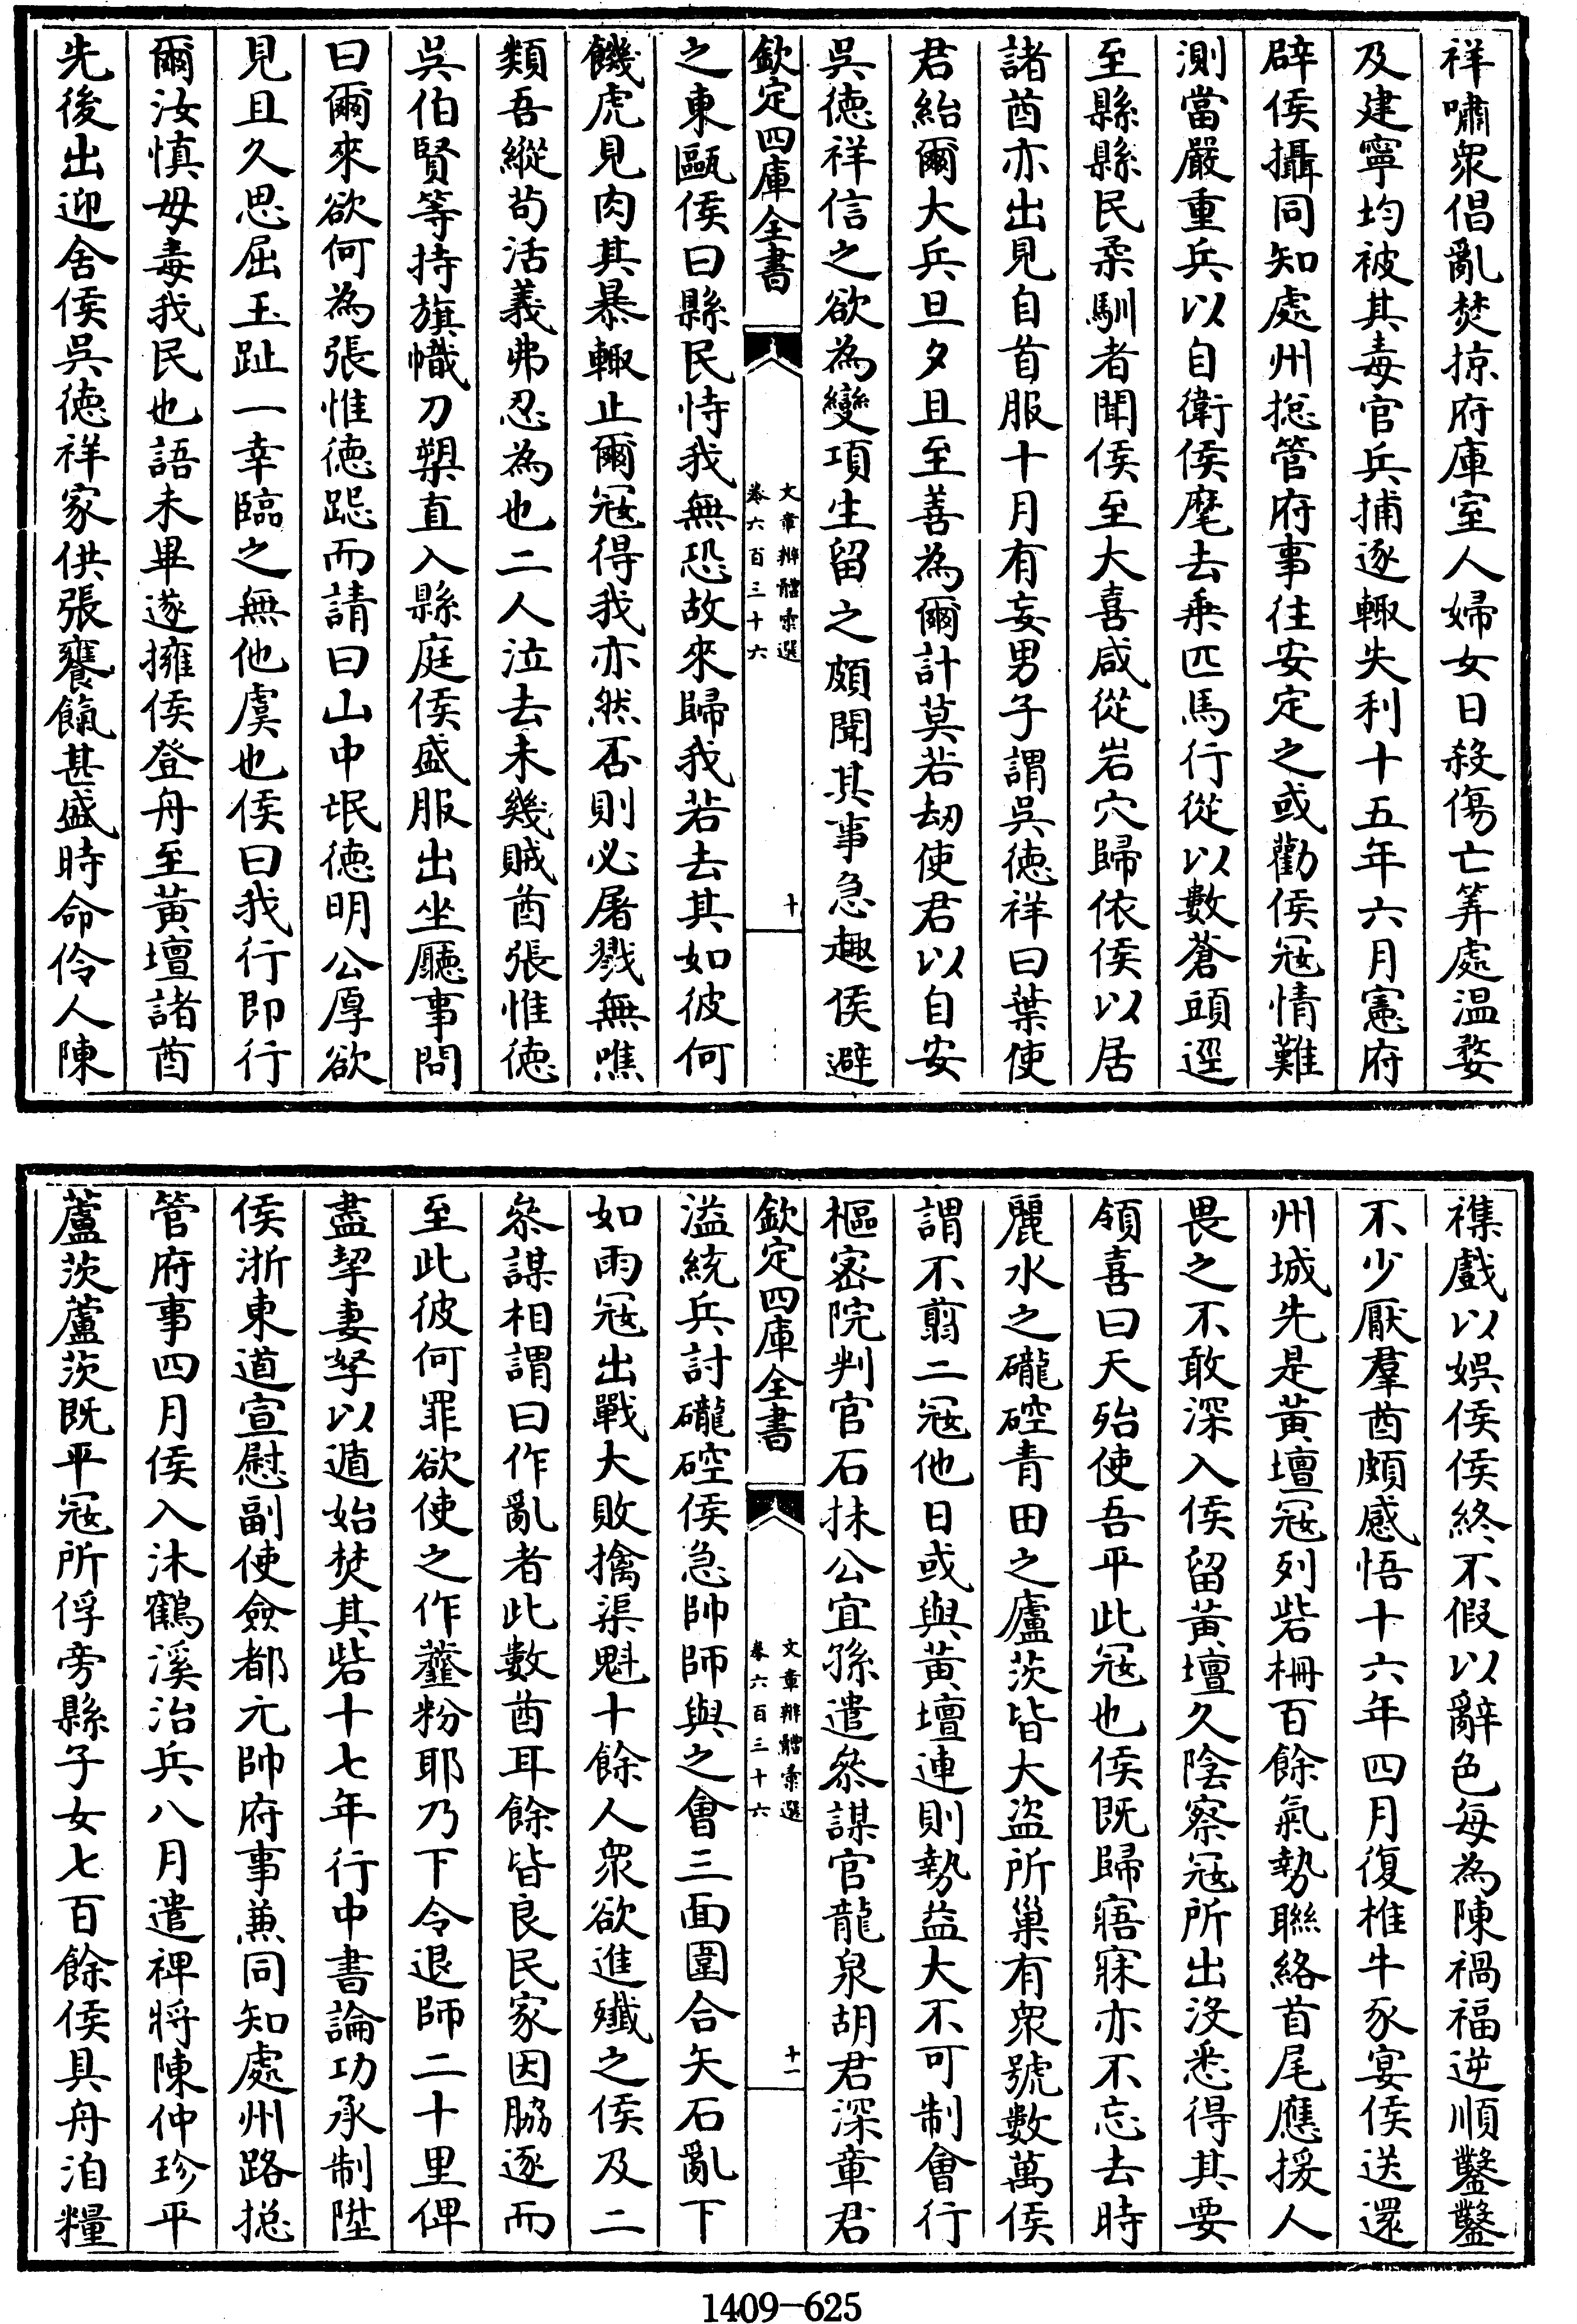 祥嘯衆倡亂焚掠府庫室人婦女日殺傷亡筭處温婺
及建寧均被其毒官兵捕逐輙失利十五年六月憲府
辟侯攝同知處州揔管府事往安定之或勸侯冦情難
測當嚴重兵以自衛侯麾去乗匹馬行從以數蒼頭逕
至縣縣民柔馴者聞侯至大喜咸從岩穴歸依侯以居
諸酋亦出見自首服十月有妄男子謂吳徳祥曰葉使
君紿爾大兵旦夕且至善為爾計莫若刼使君以自安
吳徳祥信之欲為變項生留之頗聞其事急趣侯避
欽定四庫全書
文章辨體彚選
卷六百三十六
十
之東甌侯曰縣民恃我無恐故來歸我若去其如彼何
饑虎見肉其暴輙止爾冦得我亦然否則必屠戮無噍
類吾縱茍活義弗忍為也二人泣去未幾賊酋張惟徳
吳伯賢等持旗幟刀槊直入縣庭侯盛服出坐廳事問
曰爾來欲何為張惟徳跽而請曰山中氓徳明公厚欲
見且久思屈玉趾一幸臨之無他虞也侯曰我行即行
爾汝慎毋毒我民也語未畢遂擁侯登舟至黄壇諸酋
先後出迎舍侯吳徳祥家供張饔餼甚盛時命伶人陳
襍戲以娯侯侯終不假以辭色每為陳禍福逆順鑿鑿
不少厭羣酋頗感悟十六年四月復椎牛豕宴侯送還
州城先是黄壇冦列砦栅百餘氣勢聯絡首尾應援人
畏之不敢深入侯留黄壇久陰察冦所出没悉得其要
領喜曰天殆使吾平此冦也侯既歸寤寐亦不忘去時
麗水之礲硿青田之廬茨皆大盗所巢有衆號數萬侯
謂不翦二冦他日或與黄壇連則勢益大不可制會行
樞宻院判官石抹公宜孫遣叅謀官龍泉胡君深章君
欽定四庫全書
文章辨體彚選
卷六百三十六
十一
溢統兵討礲硿侯急帥師與之會三面圍合矢石亂下
如雨冦出戰大敗擒渠魁十餘人衆欲進殱之侯及二
叅謀相謂曰作亂者此數酋耳餘皆良民家因脇逐而
至此彼何罪欲使之作虀粉耶乃下令退師二十里俾
盡挈妻孥以遁始焚其砦十七年行中書論功承制陞
侯浙東道宣慰副使僉都元帥府事兼同知處州路揔
管府事四月侯入沐鶴溪治兵八月遣裨將陳仲珍平
蘆茨蘆茨既平冦所俘旁縣子女七百餘侯具舟洎糧
1409—625